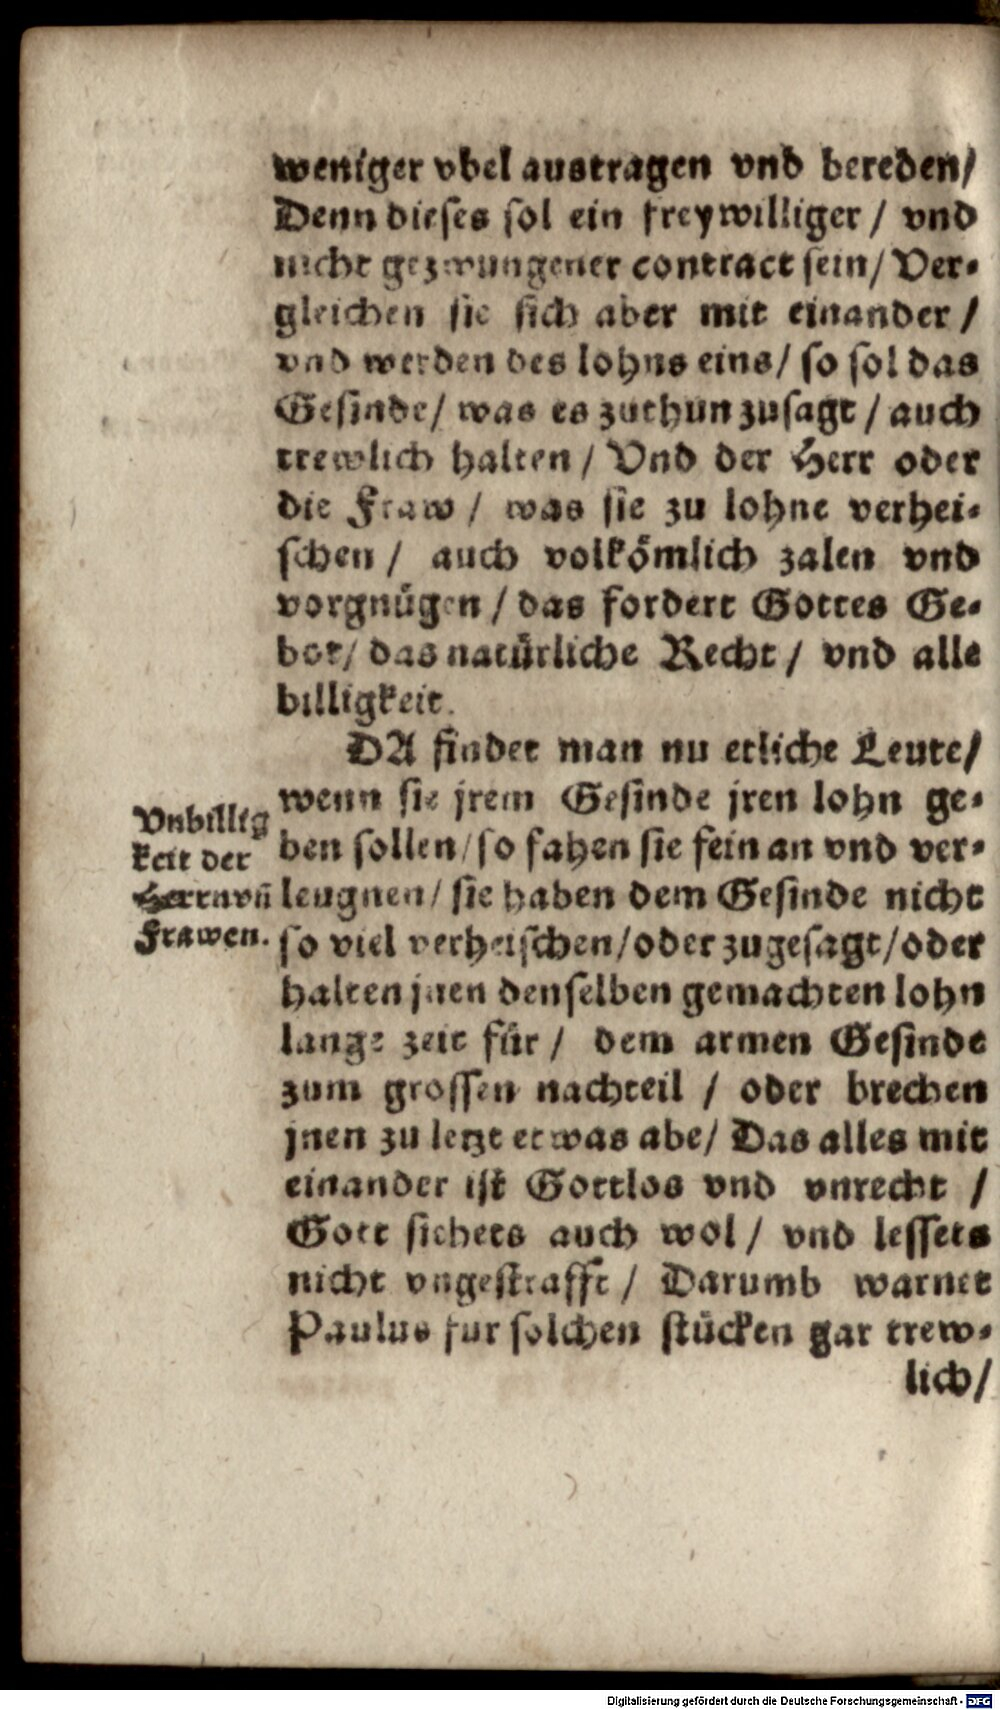 weniger vbel austragen vnd bereden/
Denn dieses sol ein freywilliger / vnd
nicht gezwungener contract sein/ Ver-
gleichen sie sich aber mit einander /
vnd werden des lohns eins/ so sol das
Gesinde/ was es zuthun zusagt / auch
trewlich halten / Vnd der Herr oder
die Fraw / was sie zu lohne verhei-
schen / auch volkömlich zalen vnd
vorgnügen / das fordert Gottes Ge-
bot/ das natürliche Recht / vnd alle
billigkeit.
DA findet man nu etliche Leute/
wenn sie jrem Gesinde jren lohn ge-
ben sollen/ so fahen sie fein an vnd ver-
leugnen/ sie haben dem Gesinde nicht
so viel verheischen/oder zugesagt/oder
halten jnen denselben gemachten lohn
lange zeit für / dem armen Gesinde
zum grossen nachteil / oder brechen
jnen zu letzt etwas abe/ Das alles mit
einander ist Gottlos vnd vnrecht /
Gott sichets auch wol / vnd lessets
nicht vngestrafft / Darumb warnet
Paulus fur solchen stücken gar trew-
lich/
Vnbillig
keit der
Herrn vñ
Frawen.
Digitalisierung gefördert durch die Deutsche Forschungsgemeinschaft - DFG